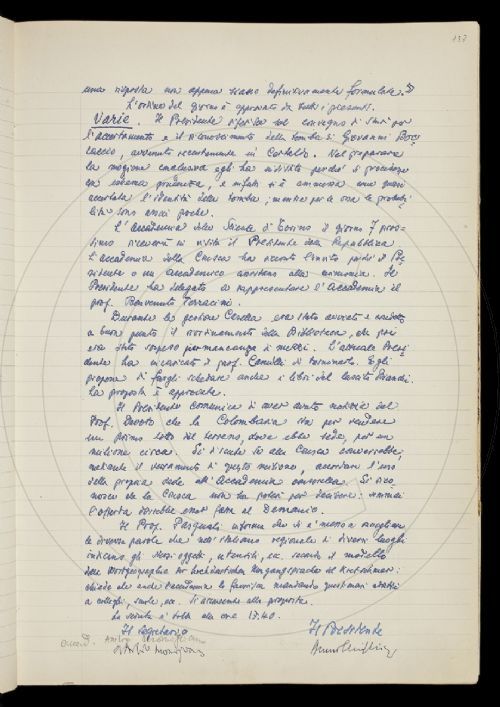 157
una risposta non appena siano definitivamente formulate.
L'ordine del giorno è approvato da tutti i presenti.
Varie. Il Presidente riferisce sul convegno di studi per
l'accertamento e il riconoscimento della tomba di Giovanni Boc-
caccio, avvenuto recentemente in Certaldo. Nel preparare
la mozione conclusiva egli ha insistito perché si procedesse
con estrema prudenza, e infatti si è ammessa una quasi
accertata l'identità della tomba, mentre per le ossa le probabi-
lità sono assai poche.
L'Accademia delle Scienze di Torino il giorno 7 pros-
simo riceverà in visita il Presidente della Repubblica
l'Accademia della Crusca ha accolto l'invito perché il Pre-
sidente o un Accademico assistesse alla cerimonia. Il
Presidente ha delegato a rappresentare l'Accademia il
prof. Benvenuto Terracini.
Durante la gestione Crusca era stato avviato e condotto
a buon punto il riordinamento della Biblioteca, che poi
era stato sospeso per mancanza di mezzi. L'attuale Presi-
dente ha incaricato il prof. Camilli di terminarlo. Egli
propone di fargli schedare anche i libri del lascito
la proposta è approvata.
Il Presidente comunica di aver avuto notizia dal
Prof. Devoto che la Colombaria sta per vendere
un primo lotto del terreno, dove ebbe sede, per un
milione circa. Si discute se alla Crusca converrebbe,
mediante il versamento di questo milione, accordare l'uso
della propria sede all'Accademia consorella. Si rico-
nosce che la Crusca non ha poteri per decidere:
l'offerta dovrebbe esser fatta al Demanio.
Il Prof. Pasquali informa che si è messo a raccogliere
le diverse parole che nell'italiano regionale di diversi luoghi
indicano gli stessi oggetti, utensili, ecc. secondo il modello
della Wortgeographie der hochdeutschen Umgangssprache del Kretschmer:
chiede che anche l'Accademia lo favorisca mandando questionari adatti
a colleghi, scuole, ecc. Si acconsente alla proposta.
La seduta è tolta alle ore 13,40.
Il Segretario
Il Presidente